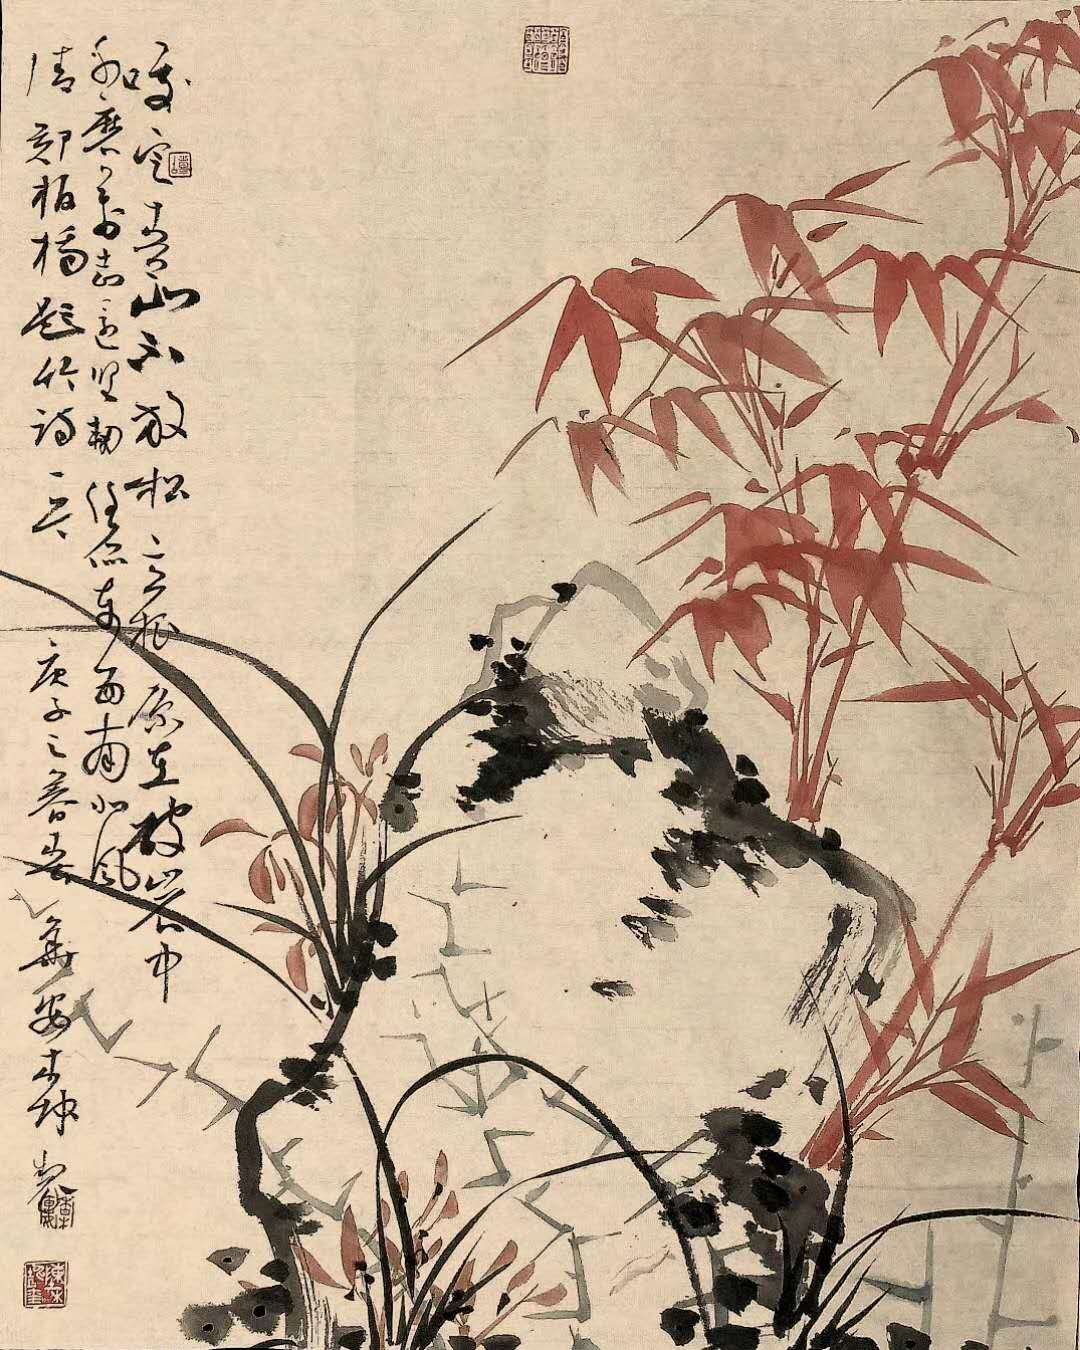 咬定青山不放松立根原在破岩中
磨万击还坚劲任尔东西南北风
清郑板桥题竹诗一首庚子之春华安木坤